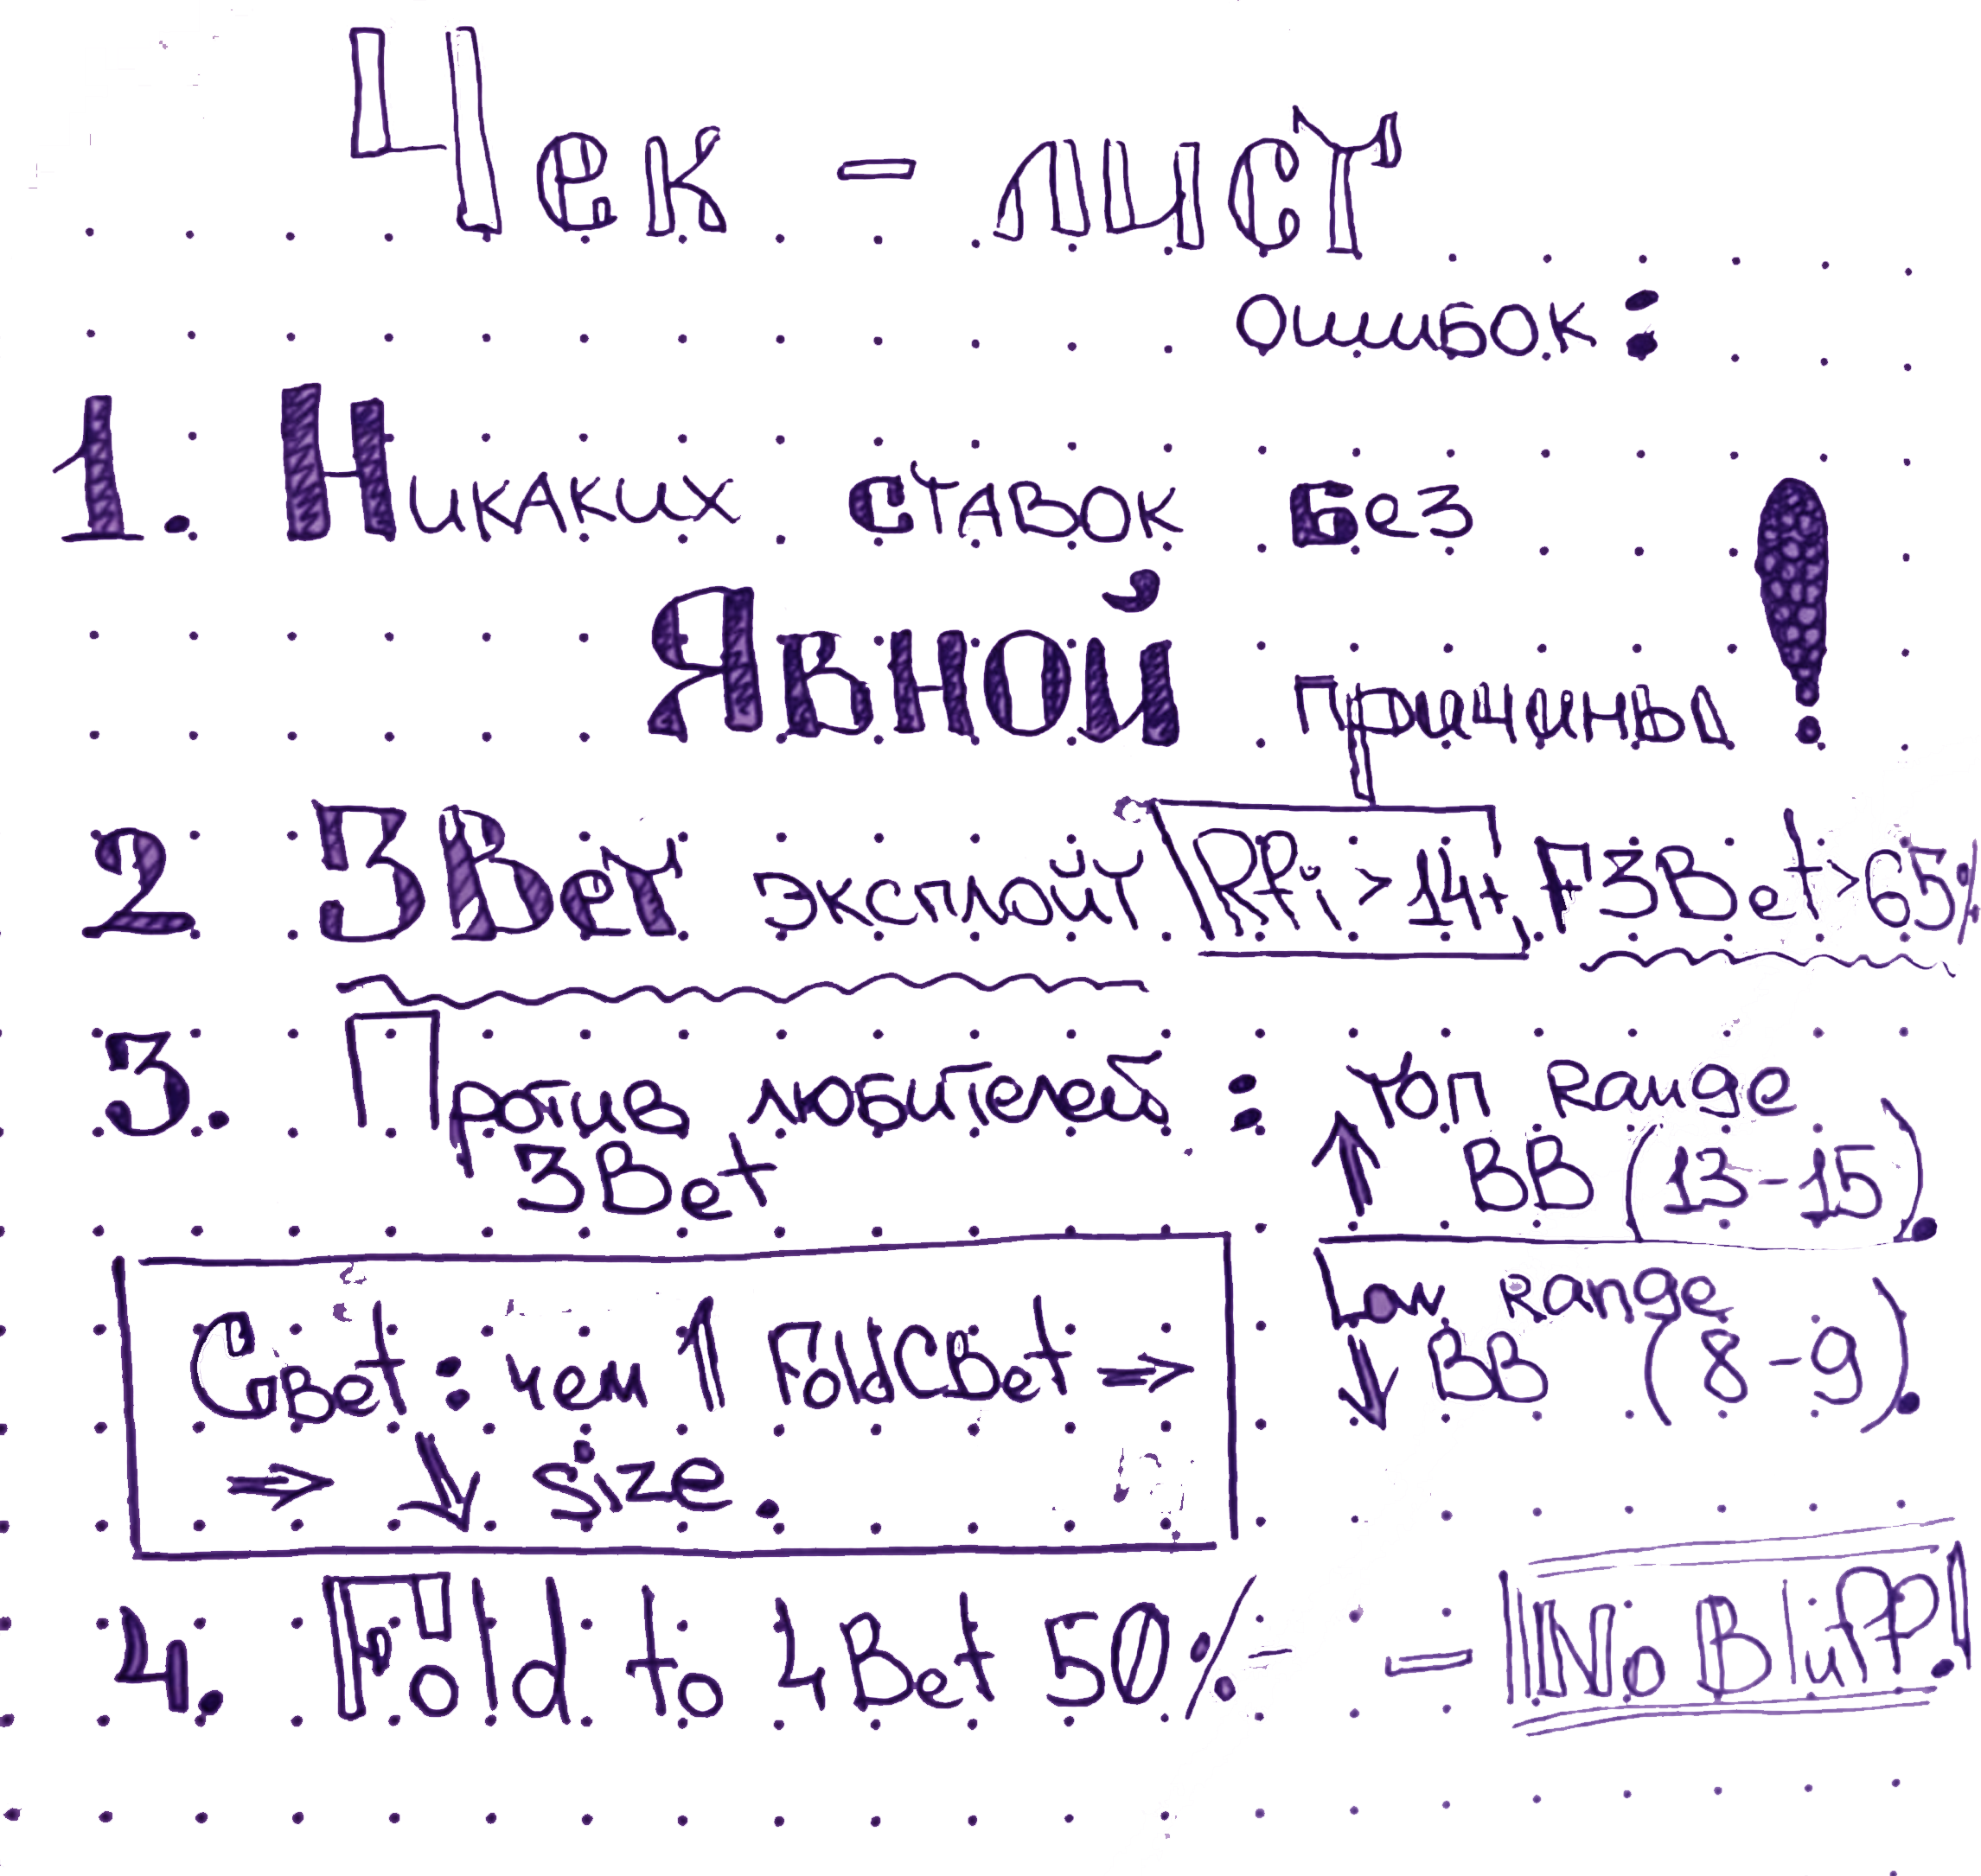 Чек - лист
ошибок:
1. Никаких ставок без
явной причины!
2 3Bet эксплойт RFi > 14+, F3Bet > 65%
3. Против любителей: топ Range
3Bet ↑ BB (13-15).
Low Range
↓ BB (8-9).
Cbet: чем ↑ FoldCBet ⇒
⇒ ↓ size.
4. Fold to 4Bet 50% - - No Bluff!